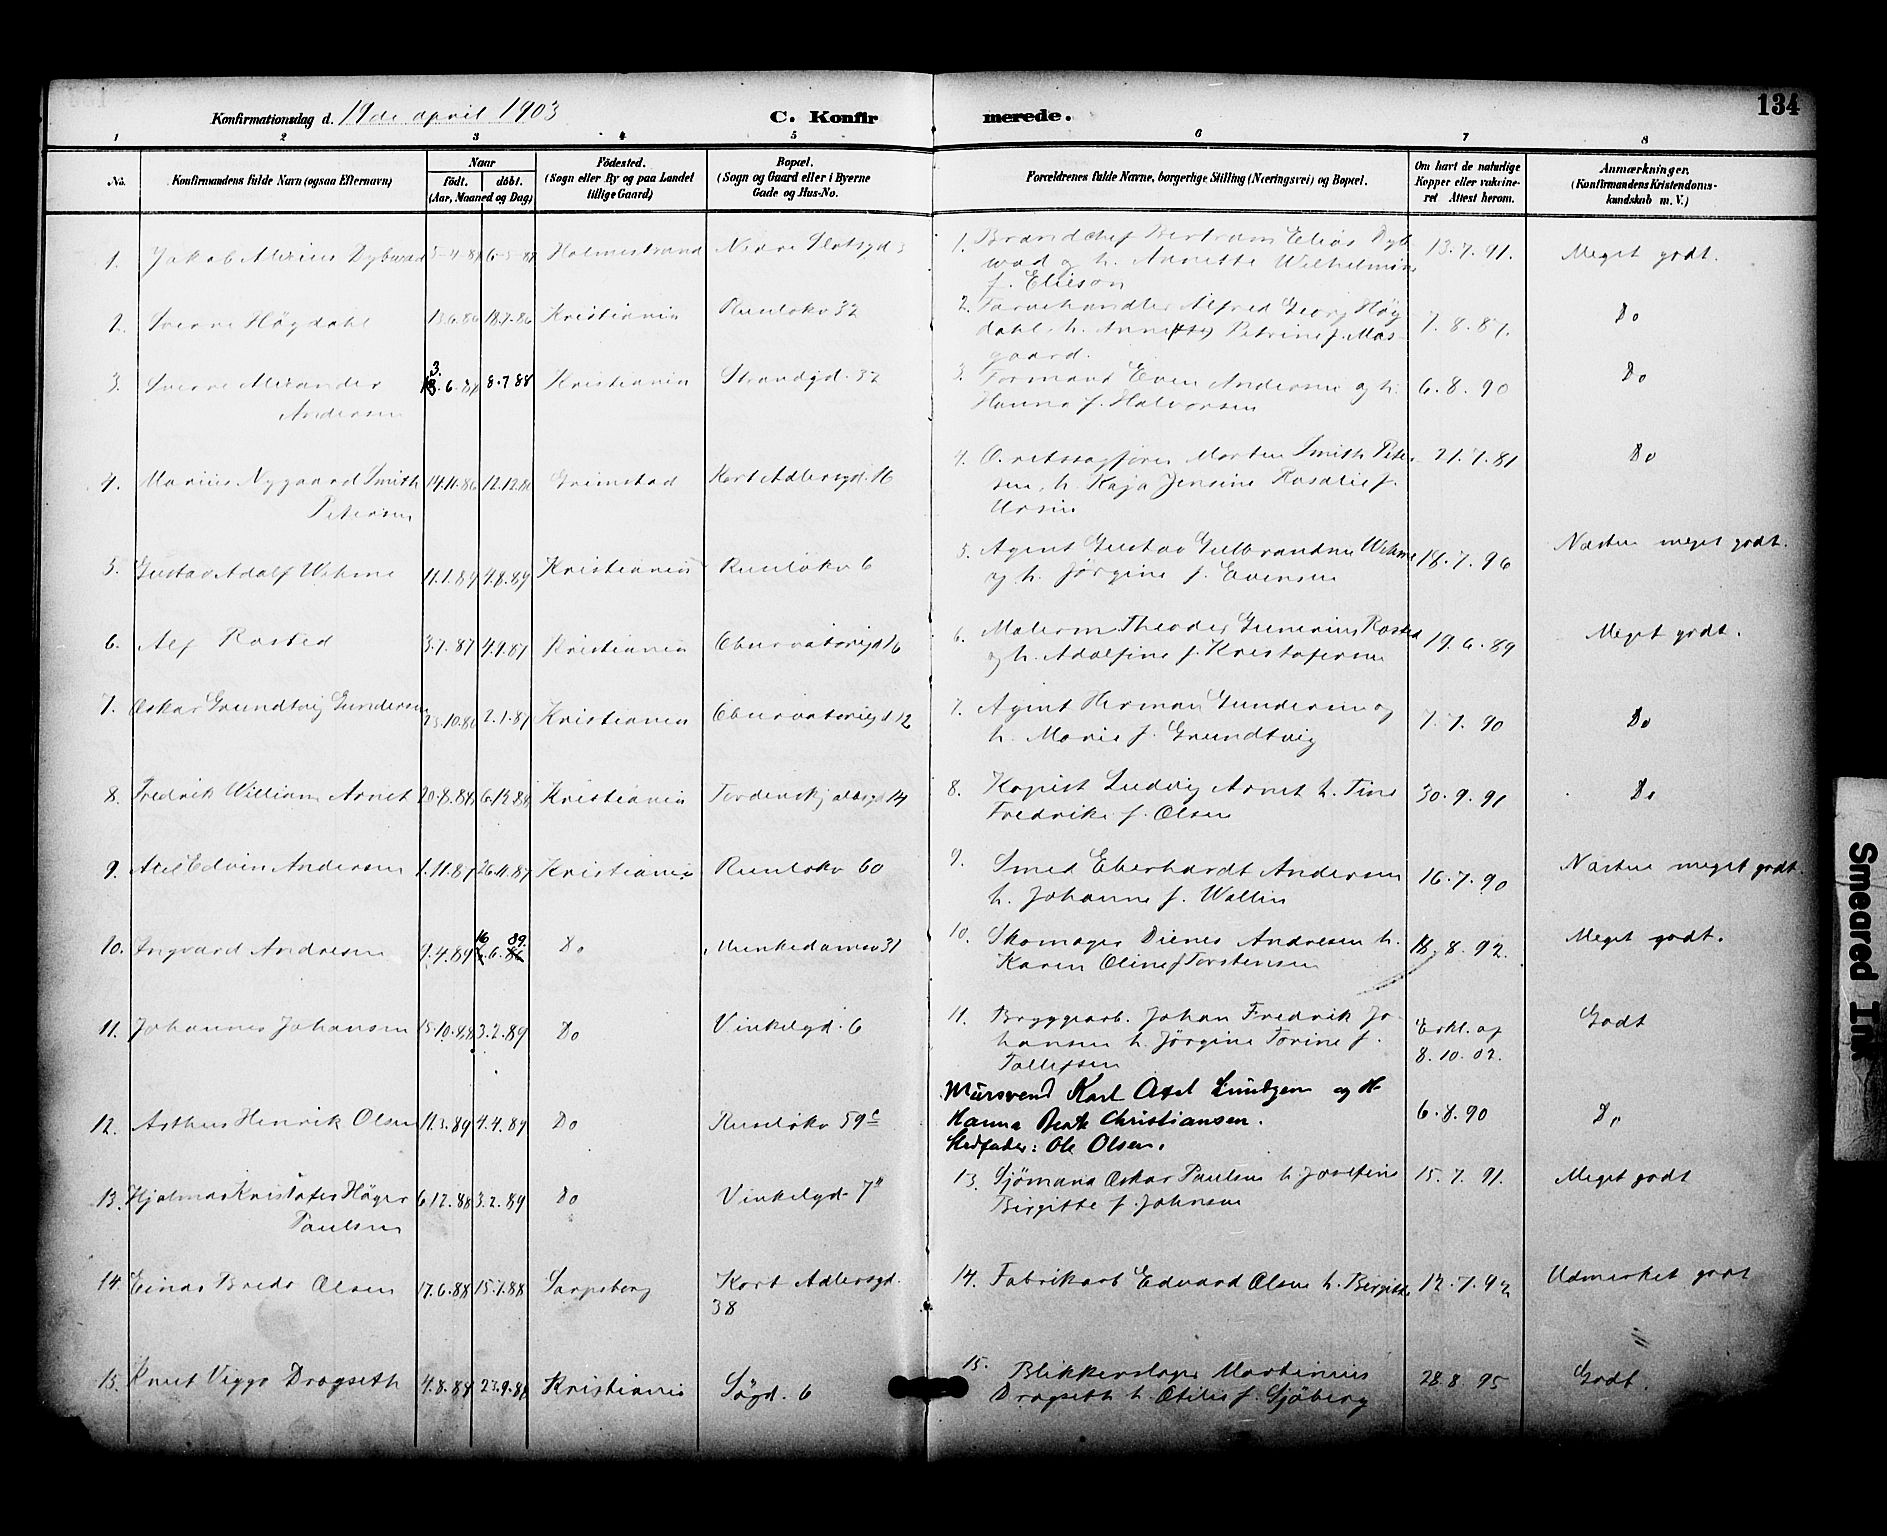 134
Konfirmationsdag d. 19de april 1903
C. Konfirmerede.
1 2 3 4 5 6 7 8
No. Konfirmandens fulde Navn (ogsaa Efternavn) Naar født. døbt. (Aar, Maaned og Dag) Fødested. (Sogn eller By og paa Landet tillige Gaard) Bopæl. (Sogn og Gaard eller i Byerne Gade og Hus-No.
Forældrenes fulde Navne, borgerlige Stilling (Næringsvei) og Bopæl. Om havt de naturlige Kopper eller vakcineret Attest herom. Anmærkninger. (Konfirmandens Kristendomskundskab m. V.)
1. Jakob Dybwad Holmestrand
1. Brandchef Bertram Elias Dyb
wad og h. Annette Wilhelmine
f. Ellison
13.7.91. Meget godt.
2. Sverre Høgdahl 13.6.86 18.7.86 Kristiania Ruseløkv 32
2. Farvehandler Alfred Georg Høg
dahl, h. Petrine f. Mos-
gaard.
7.8.87. Do
3. Sverre Alexander
Andersen
8.7.88 Kristiania Strandgd. 32
3. Formand Even Andersen og h.
Hanna f. Halvorsen
6.8.90 Do
4. Marius Nygaard Smith
Petersen
14.11.86 12.12.86 Grimstad Kort Adlersgd. 16
4. O.retssagfører Morten Smith Peter
sen, h. Kaja Jensine Rosalie f.
Ursin
21.7.81 Do
5. Gustav Adolf Wehme Kristiania Ruseløkv 6
5. Agent Gustav Gulbrandsen Wehme
og h. Jørgine f. Evensen
18.7.96 Næsten meget godt.
6. Alf Rosted 3.7.87 4.9.87 Kristiania Observatorigd 16
6. Malerm. Theodor Gunerius Rosted
og h. Adolfine f. Kristofersen
19.6.89 Meget godt.
7. Oskar Grundtvig Gundersen 23.10.86 2.1.87 Kristiania Observatorigd 12
7. Agent Herman Gundersen og
h. Marie f. Grundtvig
7.7.90 Do
8. Fredrik William Arnet Kristiania Tordenskjoldsgd 14
8. Kopist Ludvig Arnet h. Tine
Fredrikke f. Olsen
30.9.91 Do
9. Axel Edvin Andersen 1.11.87 26.11.87 Kristiania Ruseløkv 60
9. Smed Eberhardt Andersen
h. Johanne f. Wallin
16.7.90 Næsten meget godt.
10. Ingvard Andresen 9.4.89 16 89 Do Munkedamsv 31
10. Skomager Dienes Andresen h.
Karen Oline f Torstensen
18.8.92. Meget godt.
11. Johannes Johansen 15.10.88 3.2.89 Do Vinkelgd. 6
11. Bryggearb. Johan Fredrik Jo
hansen h. Jørgine Torine f.
Tollefsen
Erkl. af
8.10.02. Godt
12. Arthur Henrik Olsen 12.3.89 4.4.89 Do Ruseløkv 59c
Mursvend Karl Axel og H.
Hanna Christiansen.
Stedfader: Ole Olsen.
6.8.90 Do
13. Hjalmar Kristofer Høger
Paulsen
6.12.88 3.2.89 Do Vinkelgd. 7
13. Sjømand Oskar Paulsen h. Josefine
Birgitte f. Johnsen
15.7.91. Meget godt
14. Einar Bredo Olsen 17.6.88 15.7.88 Sarpsborg Kort Adlersgd.
38
14. Fabrikarb Edvard Olsen h. Birgitte
12.7.92 Udmerket godt
15. Knut Viggo Dragseth Kristiania Søgd. 6
15. Blikkenslager Martinius
Dragseth h. Otilie f. Sjøberg
28.8.95 Godt.
Smeared Ink